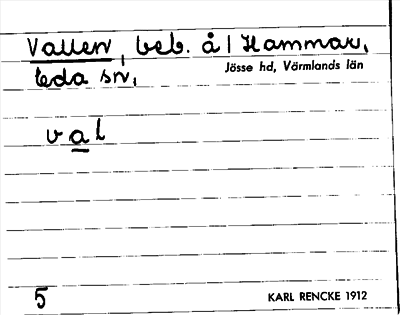 Vallen, beb. å | Hammar,
leda sn,
Jösse hd, Värmlands län
val
5
KARL RENCKE 1912